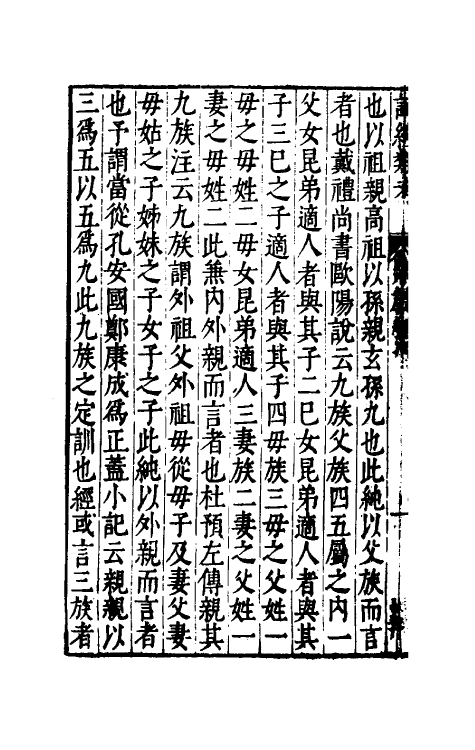 也以祖親高祖以孫親玄孫九也此純以父族而言
者也戴禮尚書歐陽說云九族父族四五屬之內一
父女昆弟適人者與其子二巳女昆弟適人者與其
子三巳之子適人者與其子四毋族三毋之父姓一
毋之毋姓二毋女昆弟適人三妻族二妻之父姓一
妻之毋姓二此兼內外親而言者也杜預左傳親其
九族注云九族謂外祖父外祖毋從毋子及妻父妻
毋姑之子姊妹之子女子之子此純以外親而言者
也予謂當從孔安國鄭康成爲正蓋小記云親親以
三爲五以五爲九此九族之定訓也經或言三族者